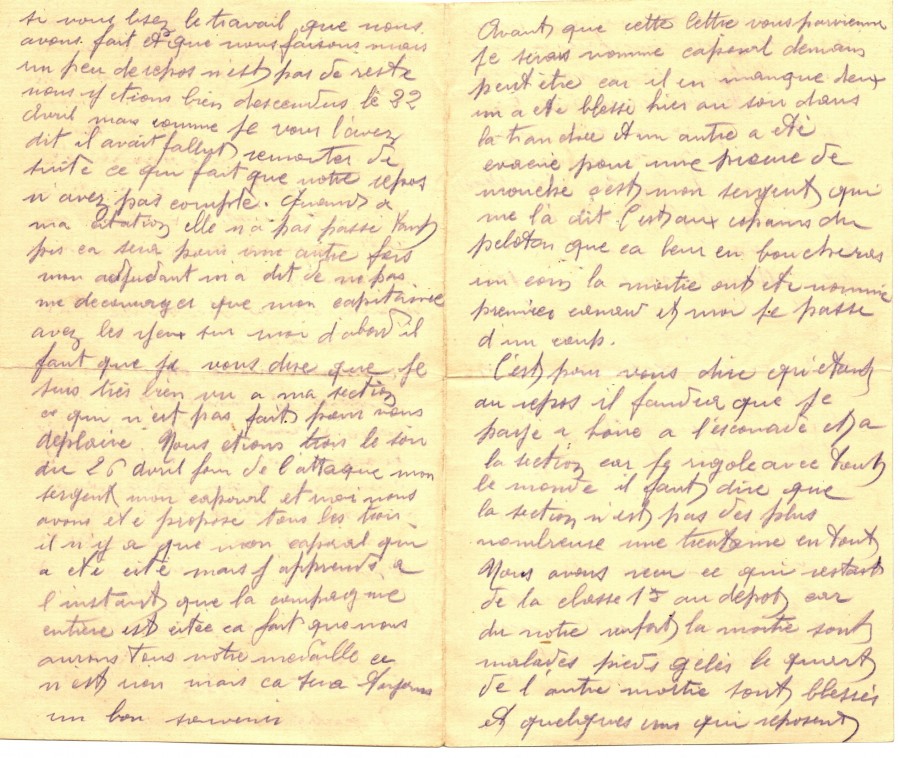 si vous lisez le travail que nous
avons fait et que nous faisons mais
un peu de repos n'est pas de reste
nous y etions bien descendus le 22
Avril mais comme je vous l'avez
dit il avait fallut remonter de
suite ce qui fait que notre repos
n'avez pas compté. Quand a
ma citation elle n'a pas passé tant
pis ca sera pour une autre fois
mon adjudant m'a dit de ne pas
me decourager que mon capitaine
avez les yeux sur moi d'abord il
faut que je vous dire que je
suis très bien vu a ma section
ce qui n'est pas fait pour vous
deplaire. Nous etions trois le soir
du 26 Avril jour de l'attaque mon
sergent mon caporal et moi nous
avons eté proposé tous les trois
il n'y a que mon caporal qui
a eté cité mais j'apprends a
l'instant que la compagnie
entière est citée ca fait que nous
aurons tous notre medaille ce
n'est rien mais ca sera toujours
un bon souvenir
Avant que cette lettre vous parvienne
je serais nommé caporal demain
peut être car il en manque deux
un a eté blessé hier au soir dans
la tranchée et un autre a eté
evacué pour une piqure de
mouche c'est mon sergent qui
me l'a dit C'est aux copains du
peloton que ca leur en bouchera
un coin la moitié ont eté nommé
premier canard et moi je passe
d'un coup.
C'est pour vous dire qu'etant
au repos il faudra que je
paye a boire a l'escouade et a
la section car je rigole avec tout
le monde il faut dire que
la section n'est pas des plus
nombreuse une trentaine en tout
Nous avons recu ce qui restait
de la classe au dépot car
du notre renfort la moitié sont
malades pieds gelés le quart
de l'autre moitié sont blessés
et quelques uns qui reposent